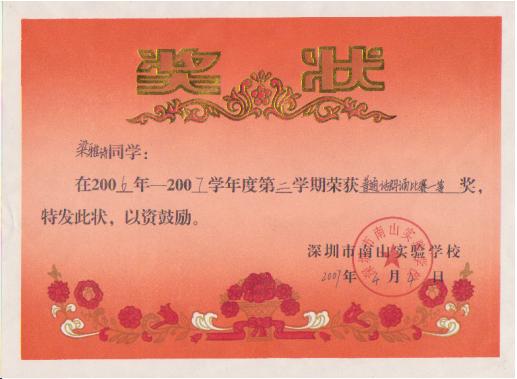 奖 状
梁雅诗同学：
在2006年—2007学年度第二学期荣获普通话朗诵比赛一等奖，
特发此状，以资鼓励。
深圳市南山实验学校
2007年4月4日
深圳市南山实验学校